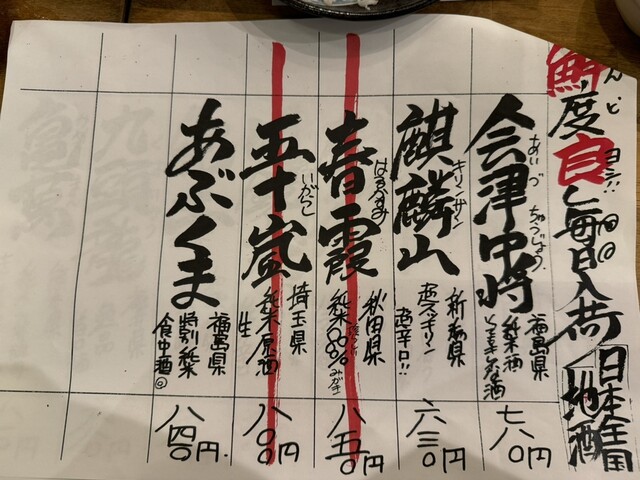 鮮度良し毎日入荷!
日本全国
地酒
会津中将
あいづ ちゅうじょう
福島県
純米酒
七八〇円
麒麟山
キリンザン
新潟県
超辛口!!
六三〇円
春霞
はるかすみ
秋田県
純米
八五〇円
五十嵐
いがらし
埼玉県
純米原酒
生
八〇〇円
あぶくま
福島県
特別純米
食中酒
八四〇円